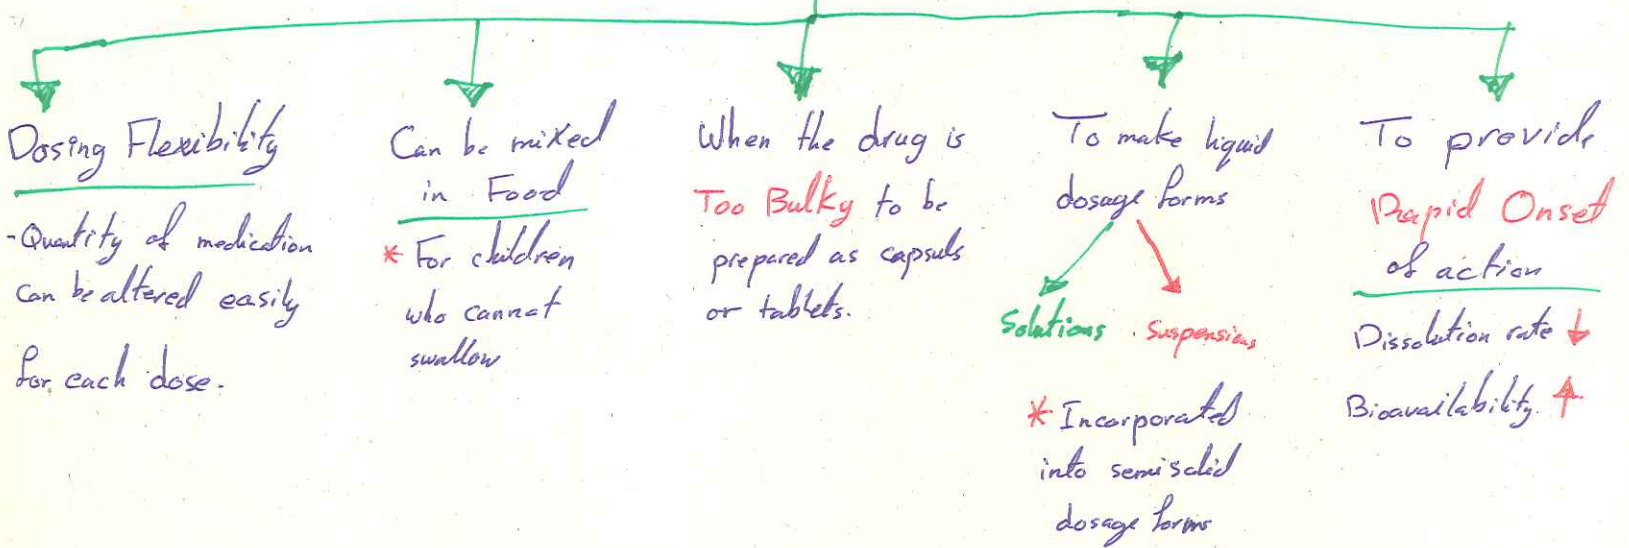 Dosing Flexibility
-Quantity of medication
can be altered easily
for each dose.
Can be mixed
in Food
* For children
who cannot
swallow
When the drug is
Too Bulky to be
prepared as capsuls
or tablets.
To make liquid
dosage forms
Solutions . Suspensions
* Incorporated
into semisolid
dosage forms
To provide
Rapid Onset
of action
Dissolution rate ↓
Bioavailability. ↑